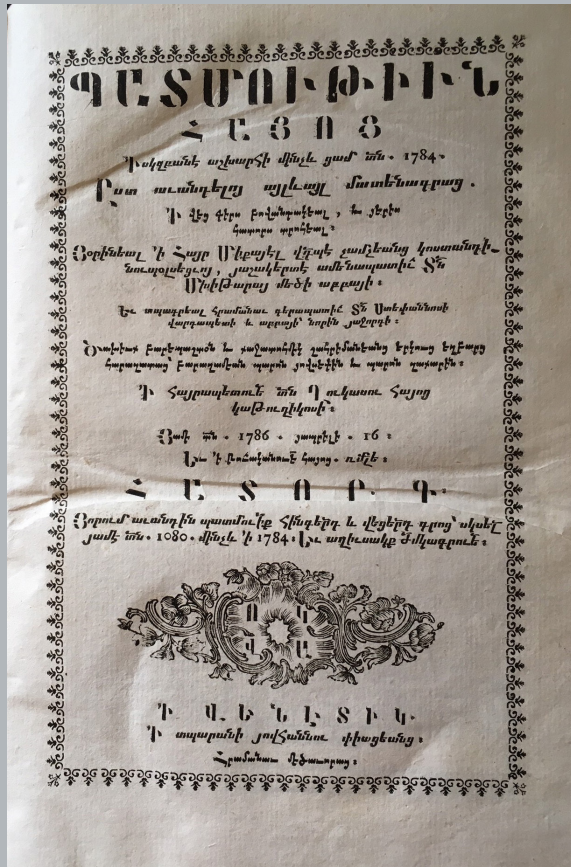 ՊԱՏՄՈՒԹԻՒՆ
ՀԱՅՈՑ
Ի սկզբանէ աշխարհի մինչև ցամ տն. 1784.
Ըստ աւանդելոյ այլևայլ մատենագրաց.
Ի վեց գիրս բովանդակեալ, և յերիս
հատորս տրոհեալ։
Յօրինեալ ՚ի Հայր Միքայէլ վրդպէ չամչեանց կոստանդի-
նուպօլսեցւոյ, յաշակերտէ ամենապատիւ Տն
Մխիթարայ մեծի աբբայի։
Եւ տպագրեալ հրամանաւ գերապատիւ Տն Ստեփաննոսի
վարդապետի և աբբայի նորին յաջորդի։
Ծախիւք բարեպաշտօն և
հարազատաց պարոն յովսէփին և պարոն
Ի Հայրապետուե տն Ղուկասու Հայոց
կաթուղիկոսի։
Յամի տն. 1786. յապրիլի. 16։
Եւ ՚ի թուականուէ հայոց. ռմլե։
ՀԱՏՈՐ Գ.
Յորում աւանդին պատմուիք Հինգերդ և վեցերդ գրոց՝ սկսել
յամէ տն. 1080. մինչև ՚ի 1784. Եւ աղիւսակք ժմկագրուե։
Ո Կ
Վ Ա
Ի ՎԵՆԷՏԻԿ.
Ի տպարանի յովհաննու փիացեանց։
Հրամանաւ մեծաւորաց։